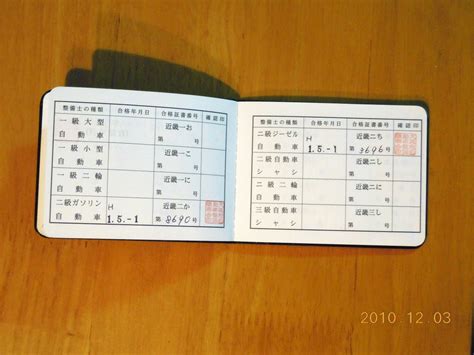 整備士の種類 合格年月日 合格証書番号 確認印
一級大型 近畿一お
自動車 第 号
一級小型 近畿一こ
自動車 第 号
一級二輪 近畿一に
自動車 第 号
二級ガソリン H 近畿二か
自動車 1.5.-1 第 8690 号
整備士の種類 合格年月日 合格証書番号 確認印
二級ジーゼル H 近畿二ち
自動車 1.5.-1 第 3696 号
二級自動車 近畿二し
シャシ 第 号
二級二輪 近畿二に
自動車 第 号
三級自動車 近畿三し
シャシ 第 号
2010.12.03